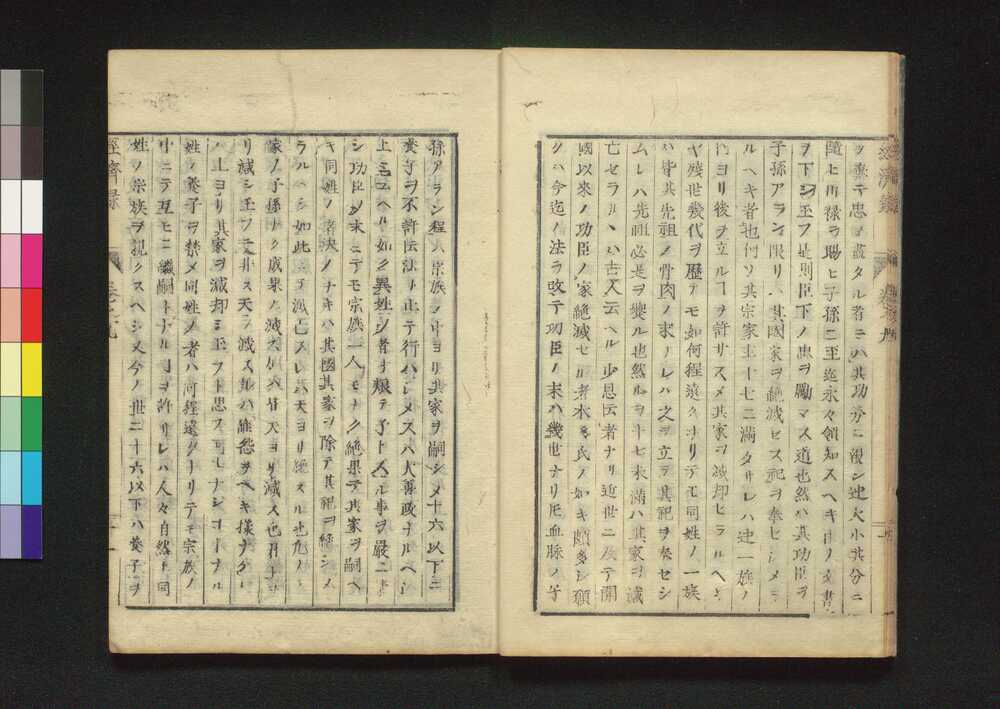 ヲ棄テ忠ヲ致タル者ニハ其功労ニ従ヒ大小其分ニ
随ヒ田禄ヲ賜ヒ子孫ニ至迄永々領知スヘキ由ノ文書
ヲ下シ玉フ是則臣下ノ忠ヲ勵マス道也然ハ其功臣ヲ
子孫アラン限リハ其國家ヲ絶滅セス祀ヲ奉セシメラ
ルヘキ者也何ソ其宗家主十七ニ滿タサレハ迚一族ノ
内ヨリ後ヲ立ルヿヲ許サスメ其家ヲ滅却セラルヘキ
ヤ残世幾代ヲ歴テモ如何程遠クナリテモ同姓ノ一族
ハ皆其先祖ノ骨肉ノ末ナレハ之ヲ立テ其祀ヲ奉セシ
ムレハ先祖必是ヲ饗ル也然ルヲ十七未滿ハ其家ヲ滅
亡セラルヽハ古人云ヘル少恩云者ナリ近世ニ及テ開
國以來ノ功臣ノ家絶滅セル者本多氏ノ如キ頗多シ願
クハ今迄ノ法ヲ改テ功臣ノ末ハ幾世ナリ𪜈血脉ノ子
經濟録 巻之九
孫アラン程ハ宗族ノ中ヨリ其家ヲ嗣シメ十六以下ニ
養子ヲ不許法ヲ止テ行ハレメスハ大専政ナルヘシ
上ニ云ヘル如ク異姓ノ者ヲ猥テ子トスル事ヲ嚴ニ禁
シ功臣ノ末ニテモ宗族一人モナク絶果テ其家ヲ嗣ヘ
キ同姓ノ苗裔ノナキハ其國其家ヲ除テ其祀ヲ絶シメ
ラルヘシ如此ニテ滅亡スレハ天ヨリ絶スル也凡ノ人
家ノ子孫ナク成果ヲ滅スルハ皆天ヨリ滅ス也君上ヨ
リ滅シ玉フニ非ス天ヨリ滅スルハ誰怨ヲヘキ様ナク
ノ上ヨリ其家ヲ滅却シ玉フト思スヿモナシヿトナル
姓ノ養子ヲ禁メ同姓ノ者ハ何程遠クナリテモ宗族ノ
中ニテ互モニ繼嗣トナルヿヲ許サレハ人々自然ト同
姓ノ宗族ヲ親クスヘシ又今ノ世ニ十六以下ハ養子ヲ
經濟録 巻之九